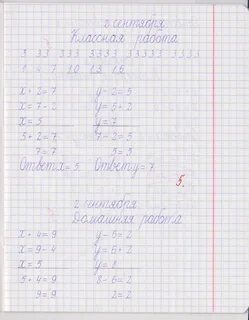 2 сентября
Классная работа
3 33 333 3333 33333 3333
1 4 7 10 13 16
x + 2 = 7 y - 2 = 5
x = 7 - 2 y = 5 + 2
x = 5 y = 7
5 + 2 = 7 7 - 2 = 5
7 = 7 5 = 5
Ответ x = 5. Ответ y = 7.
5.
2 сентября
Домашняя работа
x + 4 = 9 y - 6 = 2
x = 9 - 4 y = 6 + 2
x = 5 y = 8
5 + 4 = 9 8 - 6 = 2
9 = 9 2 = 2